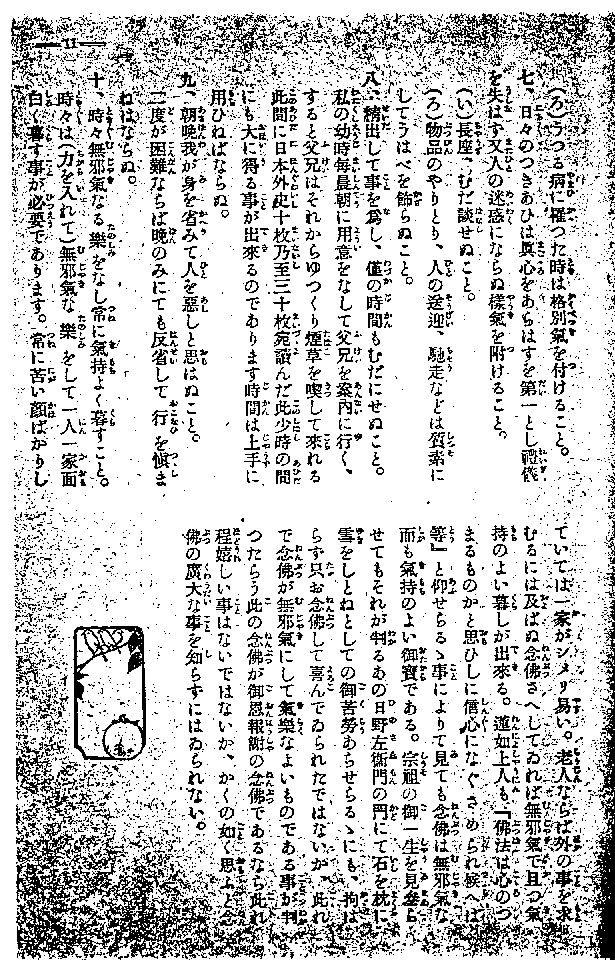 (ろ)うつる病に罹つた時は格別氣を付けること。
七、日々のつきあひは眞心をあらはすを第一とし禮儀
を失はす又人の迷惑にならぬ樣氣を附けること。
(い)長座、むだ談せぬこと。
(ろ)物品のやりとり、人の送迎、馳走などは質素に
してうはべを飾らぬこと。
八、精出して事を爲し、僅の時間もむだにせぬこと。
私の幼時每晨朝に用意をなして父兄を案內に行く、
すると父兄はそれからゆつくり煙草を喫して來れる
此間に日本外史十枚乃至三十枚宛讀んだ此少時の間
にも大に得る事が出來るのであります時間は上手に
用ひねばならぬ。
九、朝晚我が身を省みて人を惡しと思はぬこと。
二度が困難ならば晚のみにても反省して行を愼ま
ねばならぬ。
十、時々無邪氣なる樂をなし常に氣持よく暮すこと。
時々は(力を入れて)無邪氣な樂をして一人一家面
白く暮す事が必要であります。常に苦い顏ばかりし
ていては一家がシメリ易い。老人ならば外の事を求
むるには及ばぬ念佛さへしてゐれば無邪氣で且つ氣
持のよい暮しが出來る。蓮如上人も、『佛法は心のつ
まるものかと思ひしに信心になぐさめられ候へば
等』と仰せらるゝ事によりて見ても念佛は無邪氣な
而も氣持のよい御寶である。宗祖の御一生を見奉ら
せてもそれが判るあの日野左衞門の門にて石を枕に
雪をしとねとしての御苦勞あらせらるゝにも、拘は
らず只お念佛して喜んでゐられたではないか、此れ
で念佛が無邪氣にして氣樂なよいものである事が判
つたらう此の念佛が御恩報謝の念佛であるなら此れ
程嬉しい事はないではないか、かくの如く思ふと念
佛の廣大な事を知らずにはゐられない。
— 11 —